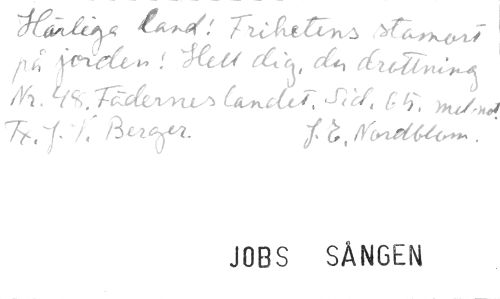 Härliga land! Frihetens stamort
på jorden! Hell dig, du drottning
Nr. 48. Fäderneslandet. Sid. 65. mel.not.
Tx. J. V. Berger. J. E. Nordblom.
JOBS SÅNGEN